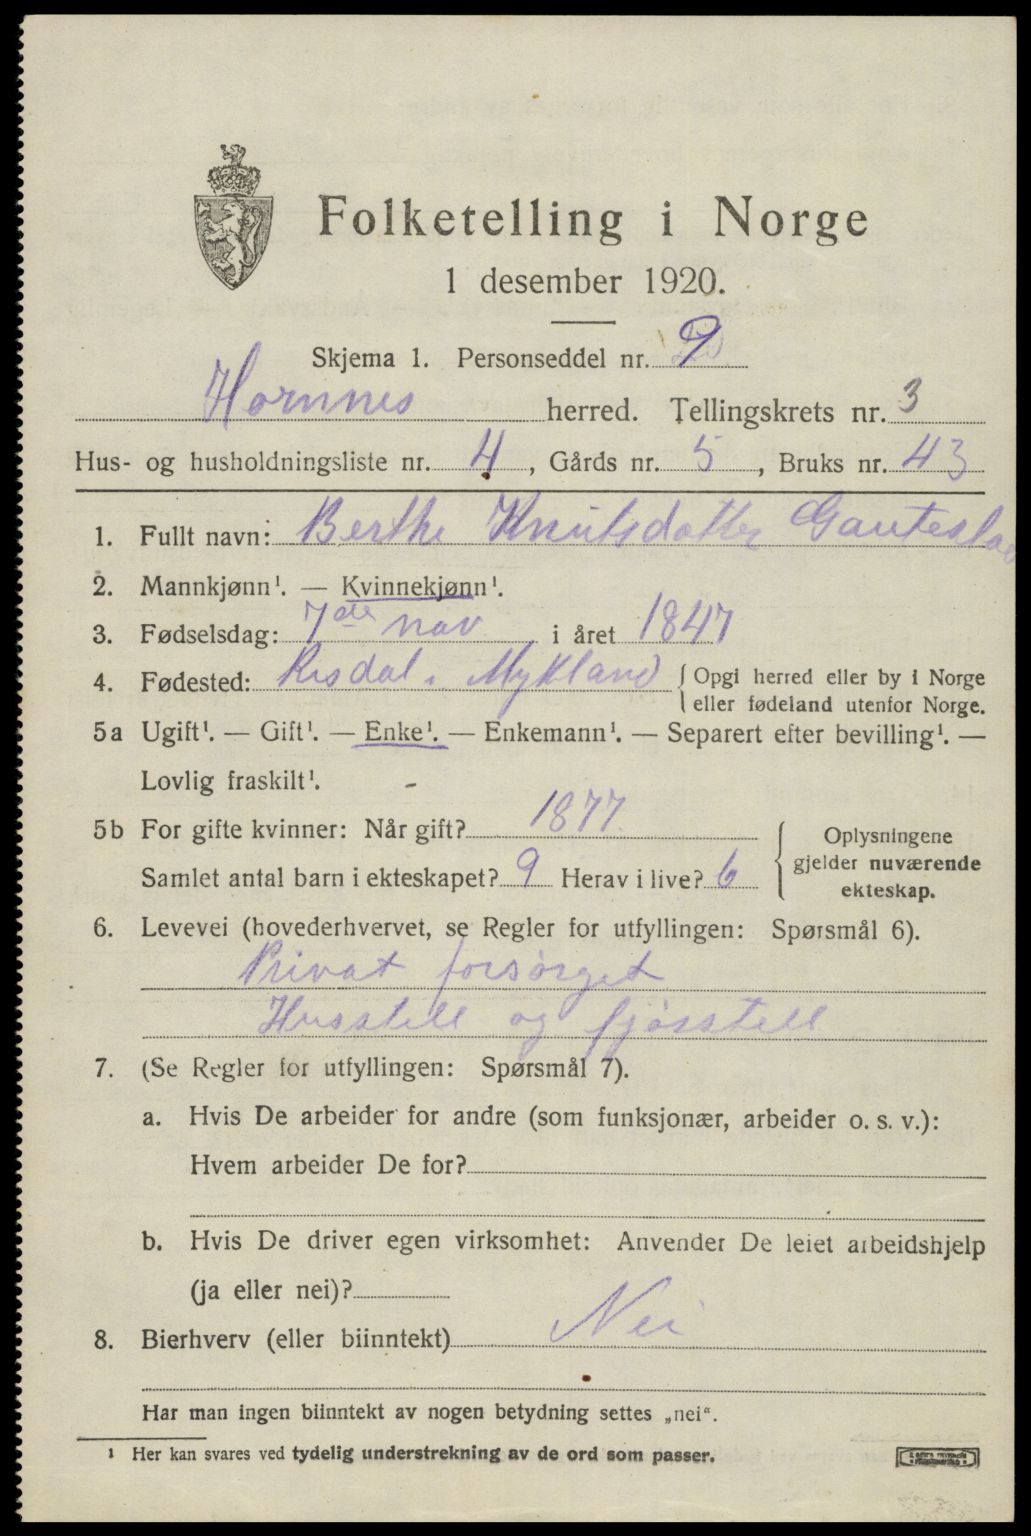 Folketelling i Norge
1 desember 1920.
Skjema 1. Personseddel nr. 9
Hornnes herred. Tellingskrets nr. 3
Hus- og husholdningsliste nr. 4, Gårds nr. 5, Bruks nr. 43
1. Fullt navn: Berthe Knutsdatter
2. Mannkjønn¹. — Kvinnekjønn¹.
3. Fødselsdag: 7de nov i året 1847
4. Fødested: Risdal i Mykland { Opgi herred eller by i Norge
eller fødeland utenfor Norge.
5a Ugift¹. — Gift¹. — Enke¹. — Enkemann¹. — Separert efter bevilling¹. —
Lovlig fraskilt¹. -
5b For gifte kvinner: Når gift? 1877.
Samlet antal barn i ekteskapet? 9 Herav i live? 6
{ Oplysningene
gjelder nuværende
ekteskap.
6. Levevei (hovederhvervet, se Regler for utfyllingen: Spørsmål 6).
Privat forsørget
Husstell og fjøsstell
7. (Se Regler for utfyllingen: Spørsmål 7).
a. Hvis De arbeider for andre (som funksjonær, arbeider o. s. v.):
Hvem arbeider De for?
b. Hvis De driver egen virksomhet: Anvender De leiet arbeidshjelp
(ja eller nei)?
8. Bierhverv (eller biinntekt) Nei
Har man ingen biinntekt av nogen betydning settes „nei“.
¹ Her kan svares ved tydelig understrekning av de ord som passer.